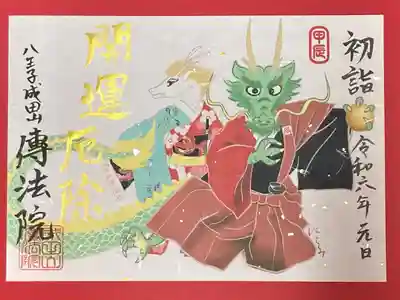 初詣
令和六年元日
甲辰
開運厄除
八王子成田山
傳法院